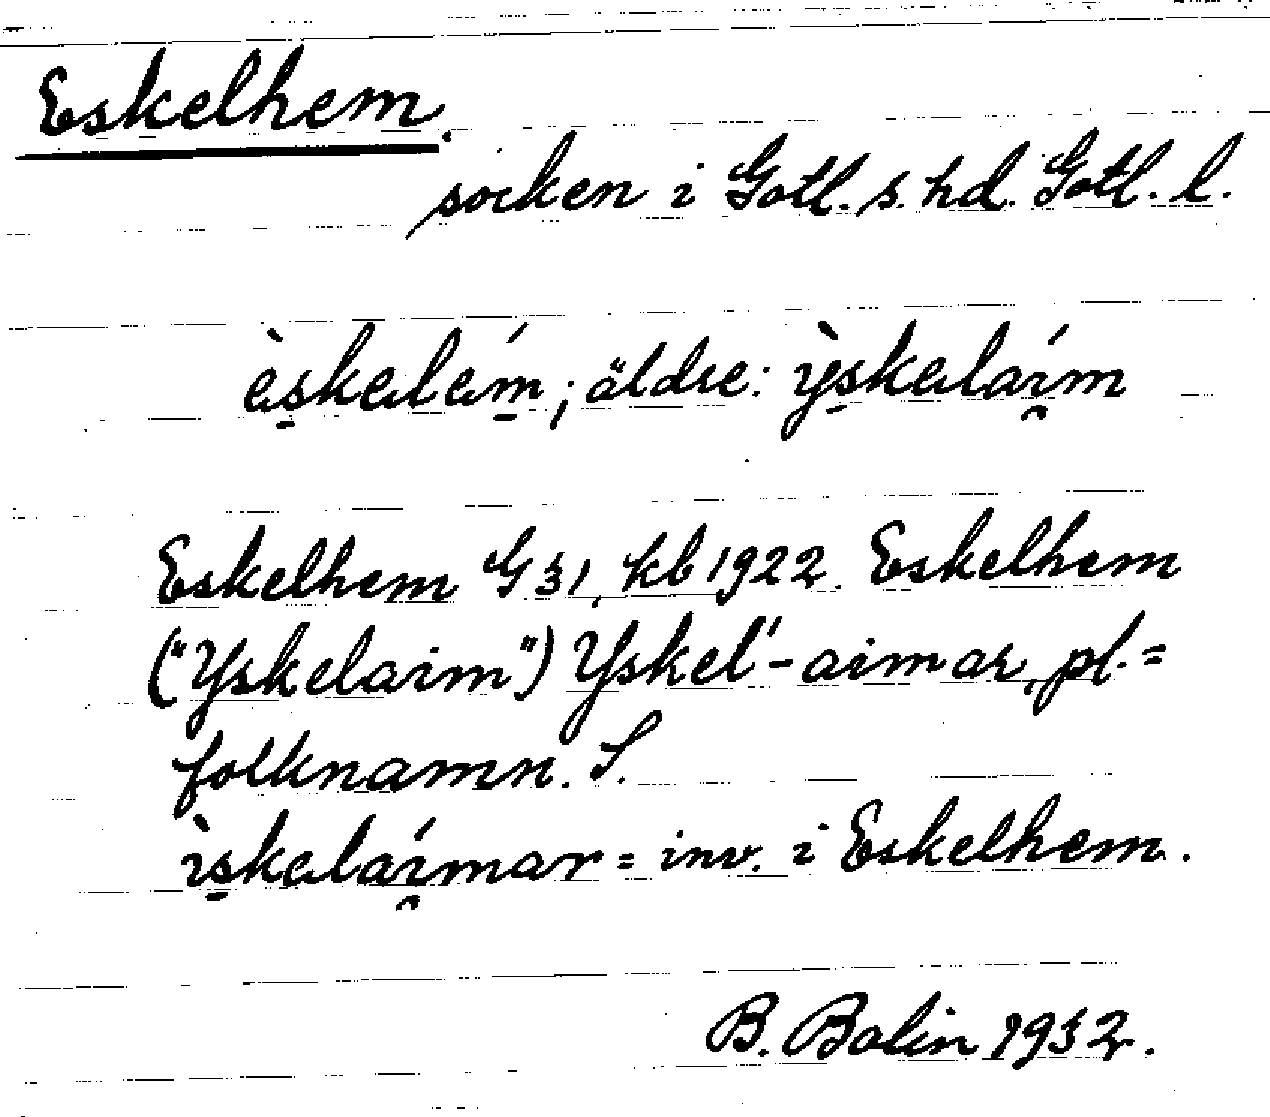 Eskelhem.
socken i Gotl. s. hd. Gotl. l.
èskalém; äldre: ỳskalaím
Eskelhem G 31, kb 1922. Eskelhem
("Yskelaim") Yskel'-aimar, pl. =
folknamn. S.
ìskalaímar = inv. i Eskelhem.
B. Bolin 1932.